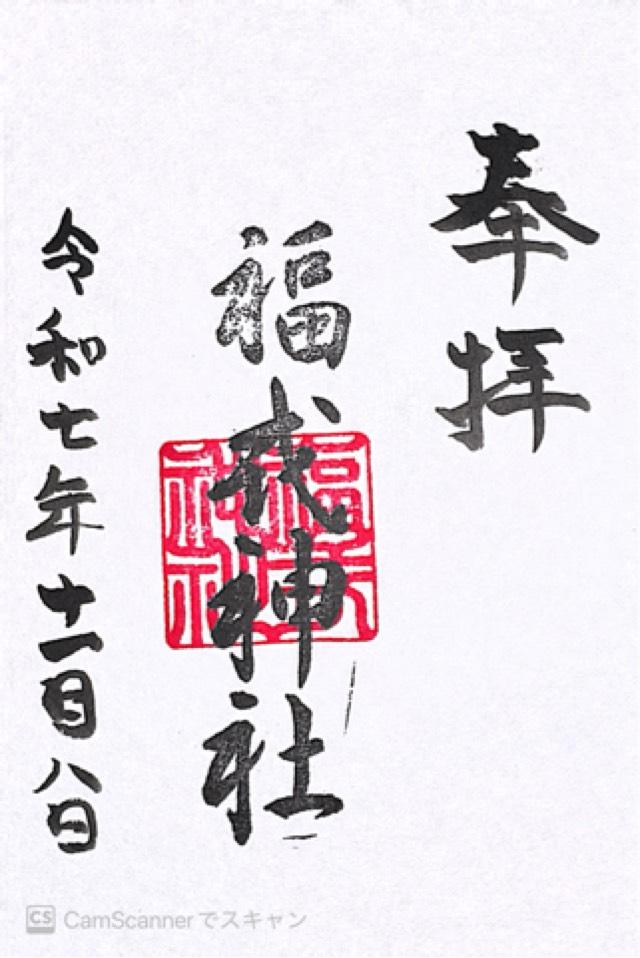 奉拝
福我神社
令和七年十一月八日
CS CamScannerでスキャン